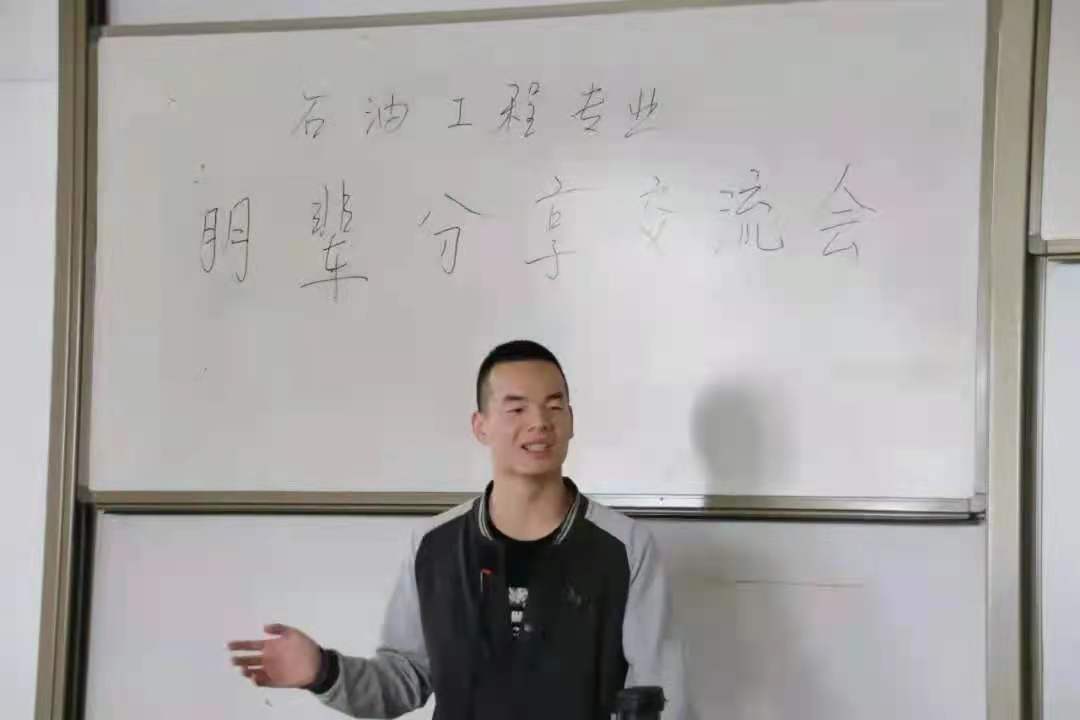 石油工程专业
朋辈分享交流会